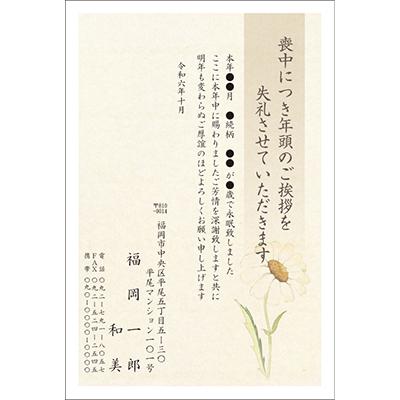 喪中につき年頭のご挨拶を
失礼させていただきます
本年●●月 ●続柄 ●● が●歳で永眠致しました
ここに本年中に賜わりましたご芳情を深謝致しますと共に
明年も変わらぬご厚誼のほどよろしくお願い申し上げます
令和六年十月
〒810
-0014
福岡市中央区平尾五丁目五−三〇
平尾マンション一〇一号
福岡一郎
和美
電話 〇九二−七九一−八〇五七
FAX 〇九二−五二四−二五四五
携帯 〇九〇−〇〇〇〇−〇〇〇〇